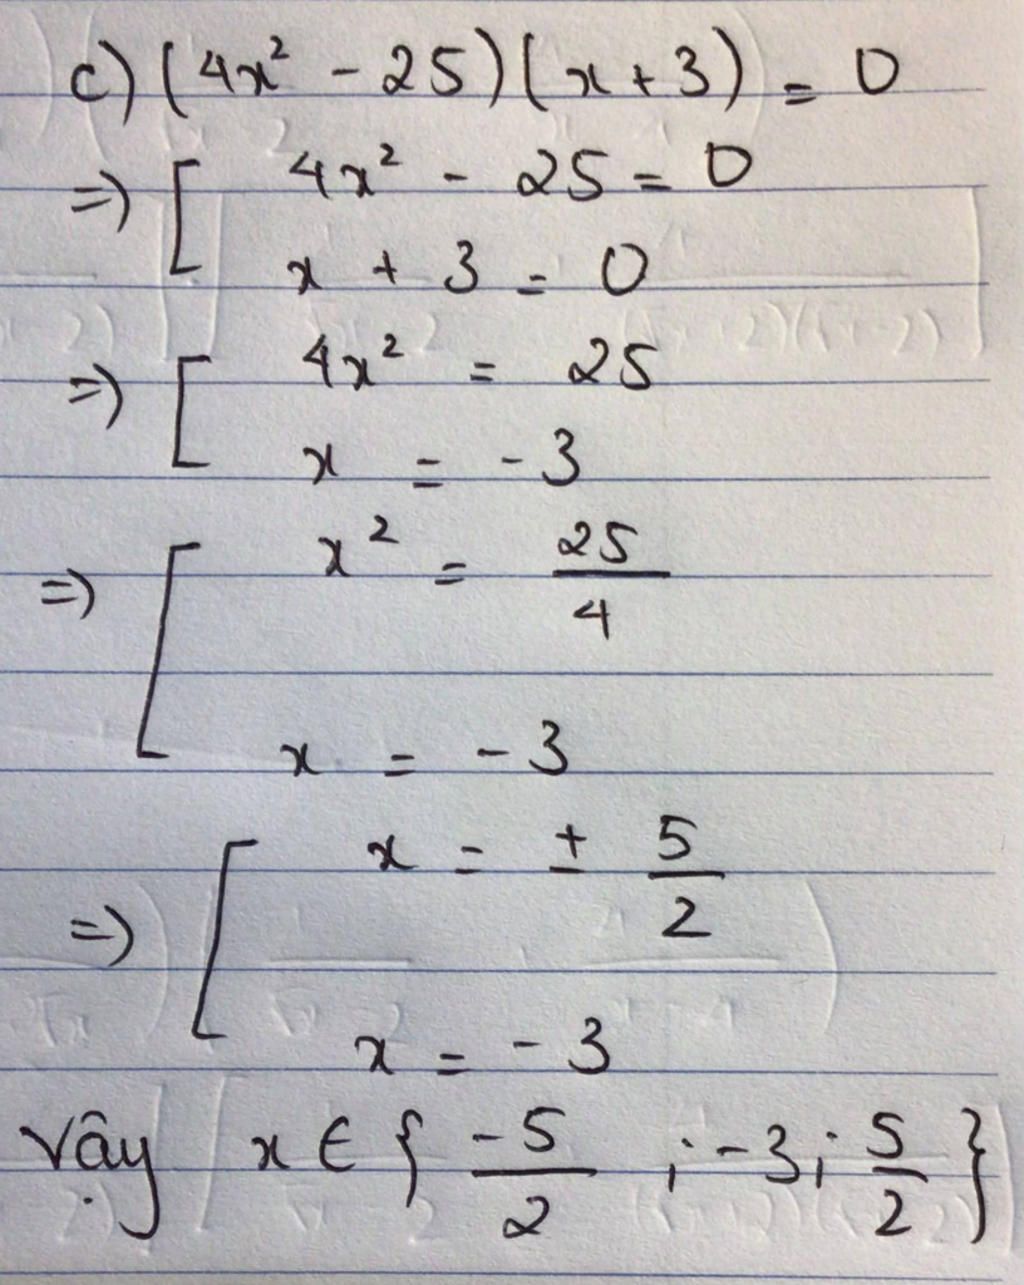 c) (4x² - 25)(x + 3) = 0
=> [ 4x² - 25 = 0
x + 3 = 0
=> [ 4x² = 25
x = -3
=> [ x² = 25/4
x = -3
=> [ x = ± 5/2
x = -3
Vậy x ∈ { -5/2 ; -3 ; 5/2 }